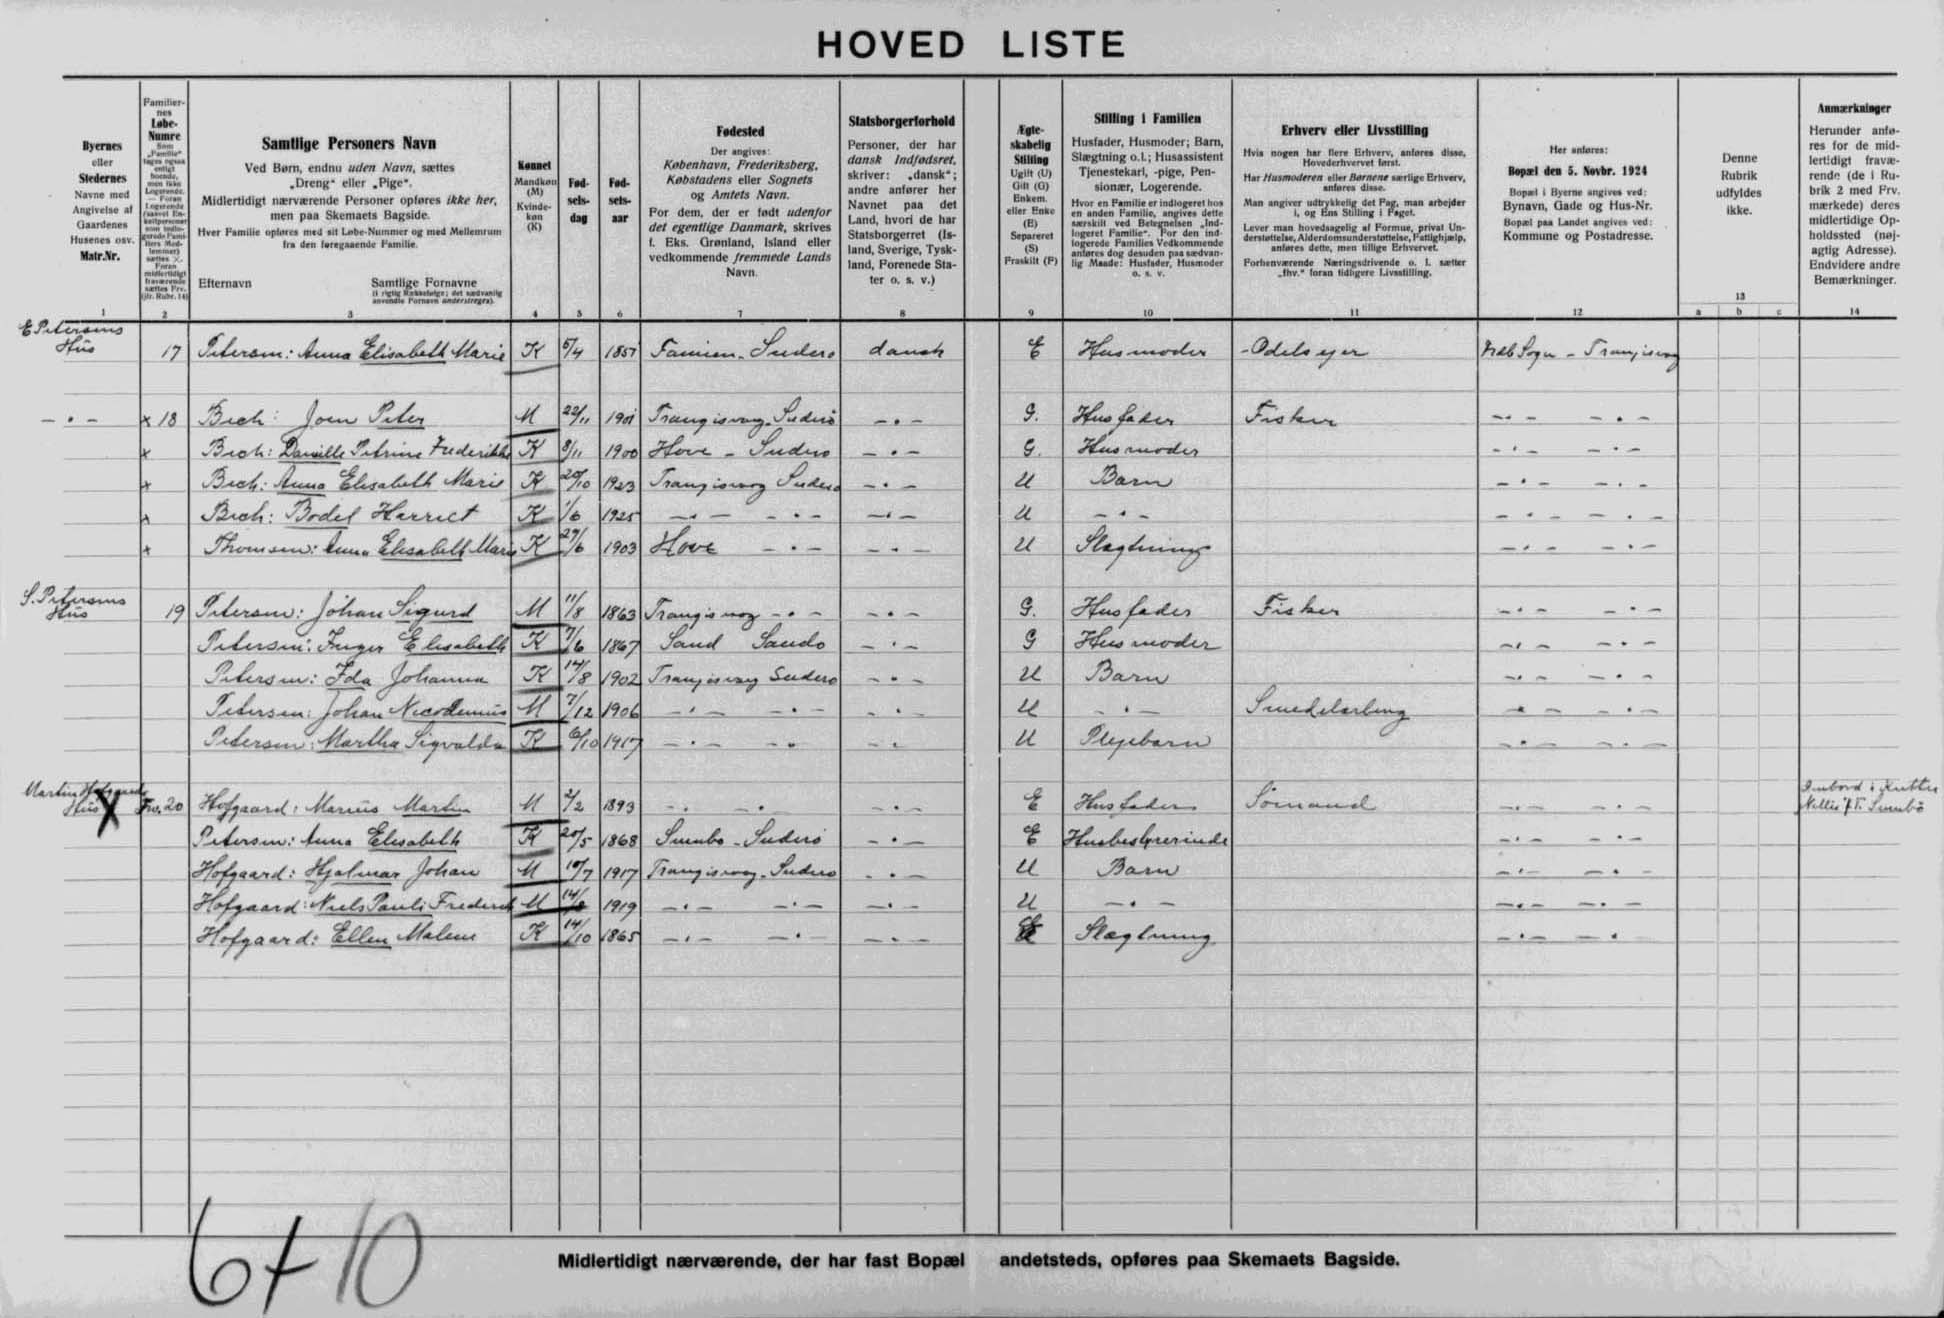 HOVED LISTE
Byernes
eller
Stedernes
Navne med
Angivelse af
Gaardenes
Husenes osv.
Matr.Nr.
Familier-
nes
Løbe-
Numre
Samtlige Personers Navn
Ved Børn, endnu uden Navn, sættes
„Dreng“ eller „Pige“.
Midlertidigt nærværende Personer opføres ikke her,
men paa Skemaets Bagside.
Hver Familie opføres med sit Løbe-Nummer og med Mellemrum
fra den føregaaende Familie.
Efternavn
Samtlige Fornavne
(i rigtig Rækkefølge; det sædvanlig
anvendte Fornavn understreges).
Kønnet
Mandkøn
(M)
Kvinde-
køn
(K)
Fød-
sels-
dag
Fød-
sels-
aar
Fødested
Der angives:
København, Frederiksberg,
Købstadens eller Sognets
og Amtets Navn.
For dem, der er født udenfor
det egentlige Danmark, skrives
f. Eks. Grønland, Island eller
vedkommende fremmede Lands
Navn.
Statsborgerforhold
Personer, der har
dansk Indfødsret,
skriver: „dansk“;
andre anfører her
Navnet paa det
Land, hvori de har
Statsborgerret (Is-
land, Sverige, Tysk-
land, Forenede Sta-
ter o. s. v.)
Ægte-
skabelig
Stilling
Ugift (U)
Gift (G)
Enkem.
eller Enke
(E)
Separeret
(S)
Fraskilt (F)
Stilling i Familien
Husfader, Husmoder; Barn,
Slægtning o.l.; Husassistent
Tjenestekarl, -pige, Pen-
sionær, Logerende.
Hvor en Familie er indlogeret hos
en anden Familie, angives dette
særskilt ved Betegnelsen „Ind-
logeret Familie“. For den ind-
logerede Families Vedkommende
anføres dog desuden paa sædvan-
lig Maade: Husfader, Husmoder
o. s. v.
Erhverv eller Livsstilling
Hvis nogen har flere Erhverv, anføres disse,
Hovederhvervet først.
Har Husmoderen eller Børnene særlige Erhverv,
anføres disse.
Man angiver udtrykkelig det Fag, man arbejder
i, og Ens Stilling i Faget.
Lever man hovedsagelig af Formue, privat Un-
derstøttelse, Alderdomsunderstøttelse, Fattighjælp,
anføres dette, men tillige Erhvervet.
Forhenværende Næringsdrivende o. l. sætter
„fhv.“ foran tidligere Livsstilling.
Her anføres:
Bopæl den 5. Novbr. 1924
Bopæl i Byerne angives ved:
Bynavn, Gade og Hus-Nr.
Bopæl paa Landet angives ved:
Kommune og Postadresse.
Denne
Rubrik
udfyldes
ikke.
Anmærkninger
Herunder anfø-
res for de mid-
lertidigt fravæ-
rende (de i Ru-
brik 2 med Frv.
mærkede) deres
midlertidige Op-
holdssted (nøj-
agtig Adresse).
Endvidere andre
Bemærkninger.
1 2 3 4 5 6 7 8 9 10 11 12 13 a b c 14
E Petersens
Hus 17 Petersen: Anna Elisabeth Marie K 5/4 1851 Famien - Suderø dansk E Husmoder Odelsejer Sogn - Trangisvaag
- " - x 18 Bech: Joen Peter M 22/11 1901 Trangisvaag Suderø - " - G. Husfader Fisker - " - - " -
x Bech: Danielle Petrine Frederikke K 8/11 1900 Hove - Suderø - " - G. Husmoder - " - - " -
x Bech: Anna Elisabeth Marie K 20/10 1923 Trangisvaag Suderø - " - U Barn - " - - " -
x Bech: Bodel Harriet K 1/6 1925 - " - - " - - " - U - " - - " - - " -
x Thomsen: Anna Elisabeth Marie K 29/6 1903 Hove - " - - " - U Slægtning - " - - " -
S. Petersens
Hus 19 Petersen: Johan Sigurd M 11/8 1863 Trangisvaag - " - - " - G. Husfader Fisker - " - - " -
Petersen: Inger Elisabeth K 7/6 1867 Sand Sandø - " - G Husmoder - " - - " -
Petersen: Ida Johanna K 14/8 1902 Trangisvaag Suderø - " - U Barn - " - - " -
Petersen: Johan Nicodemus M 7/12 1906 - " - - " - - " - U - " - Smedelærling - " - - " -
Petersen: Martha Sigvalda K 6/10 1917 - " - - " - - " - U Plejebarn - " - - " -
Martin Hofgaards
Hus X Frv. 20 Hofgaard: Marius Martin M 2/2 1893 - " - - " - - " - E Husfader Sømand - " - - " - Ombord i Kutter
Nellie
Petersen: Anna Elisabeth K 20/5 1868 Sumbø - Suderø - " - E Husbestyrerinde - " - - " -
Hofgaard: Hjalmar Johan M 19/7 1917 Trangisvaag - Suderø - " - U Barn - " - - " -
Hofgaard: Niels Pauli Frederik M 1919 - " - - " - - " - U - " - - " - - " -
Hofgaard: Ellen Malene K 14/10 1865 - " - - " - - " - Slægtning - " - - " -
6+10
Midlertidigt nærværende, der har fast Bopæl andetsteds, opføres paa Skemaets Bagside.